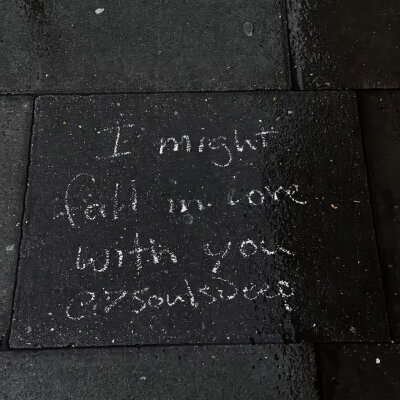 I might
fall in love...
with you
@7soulsDeep